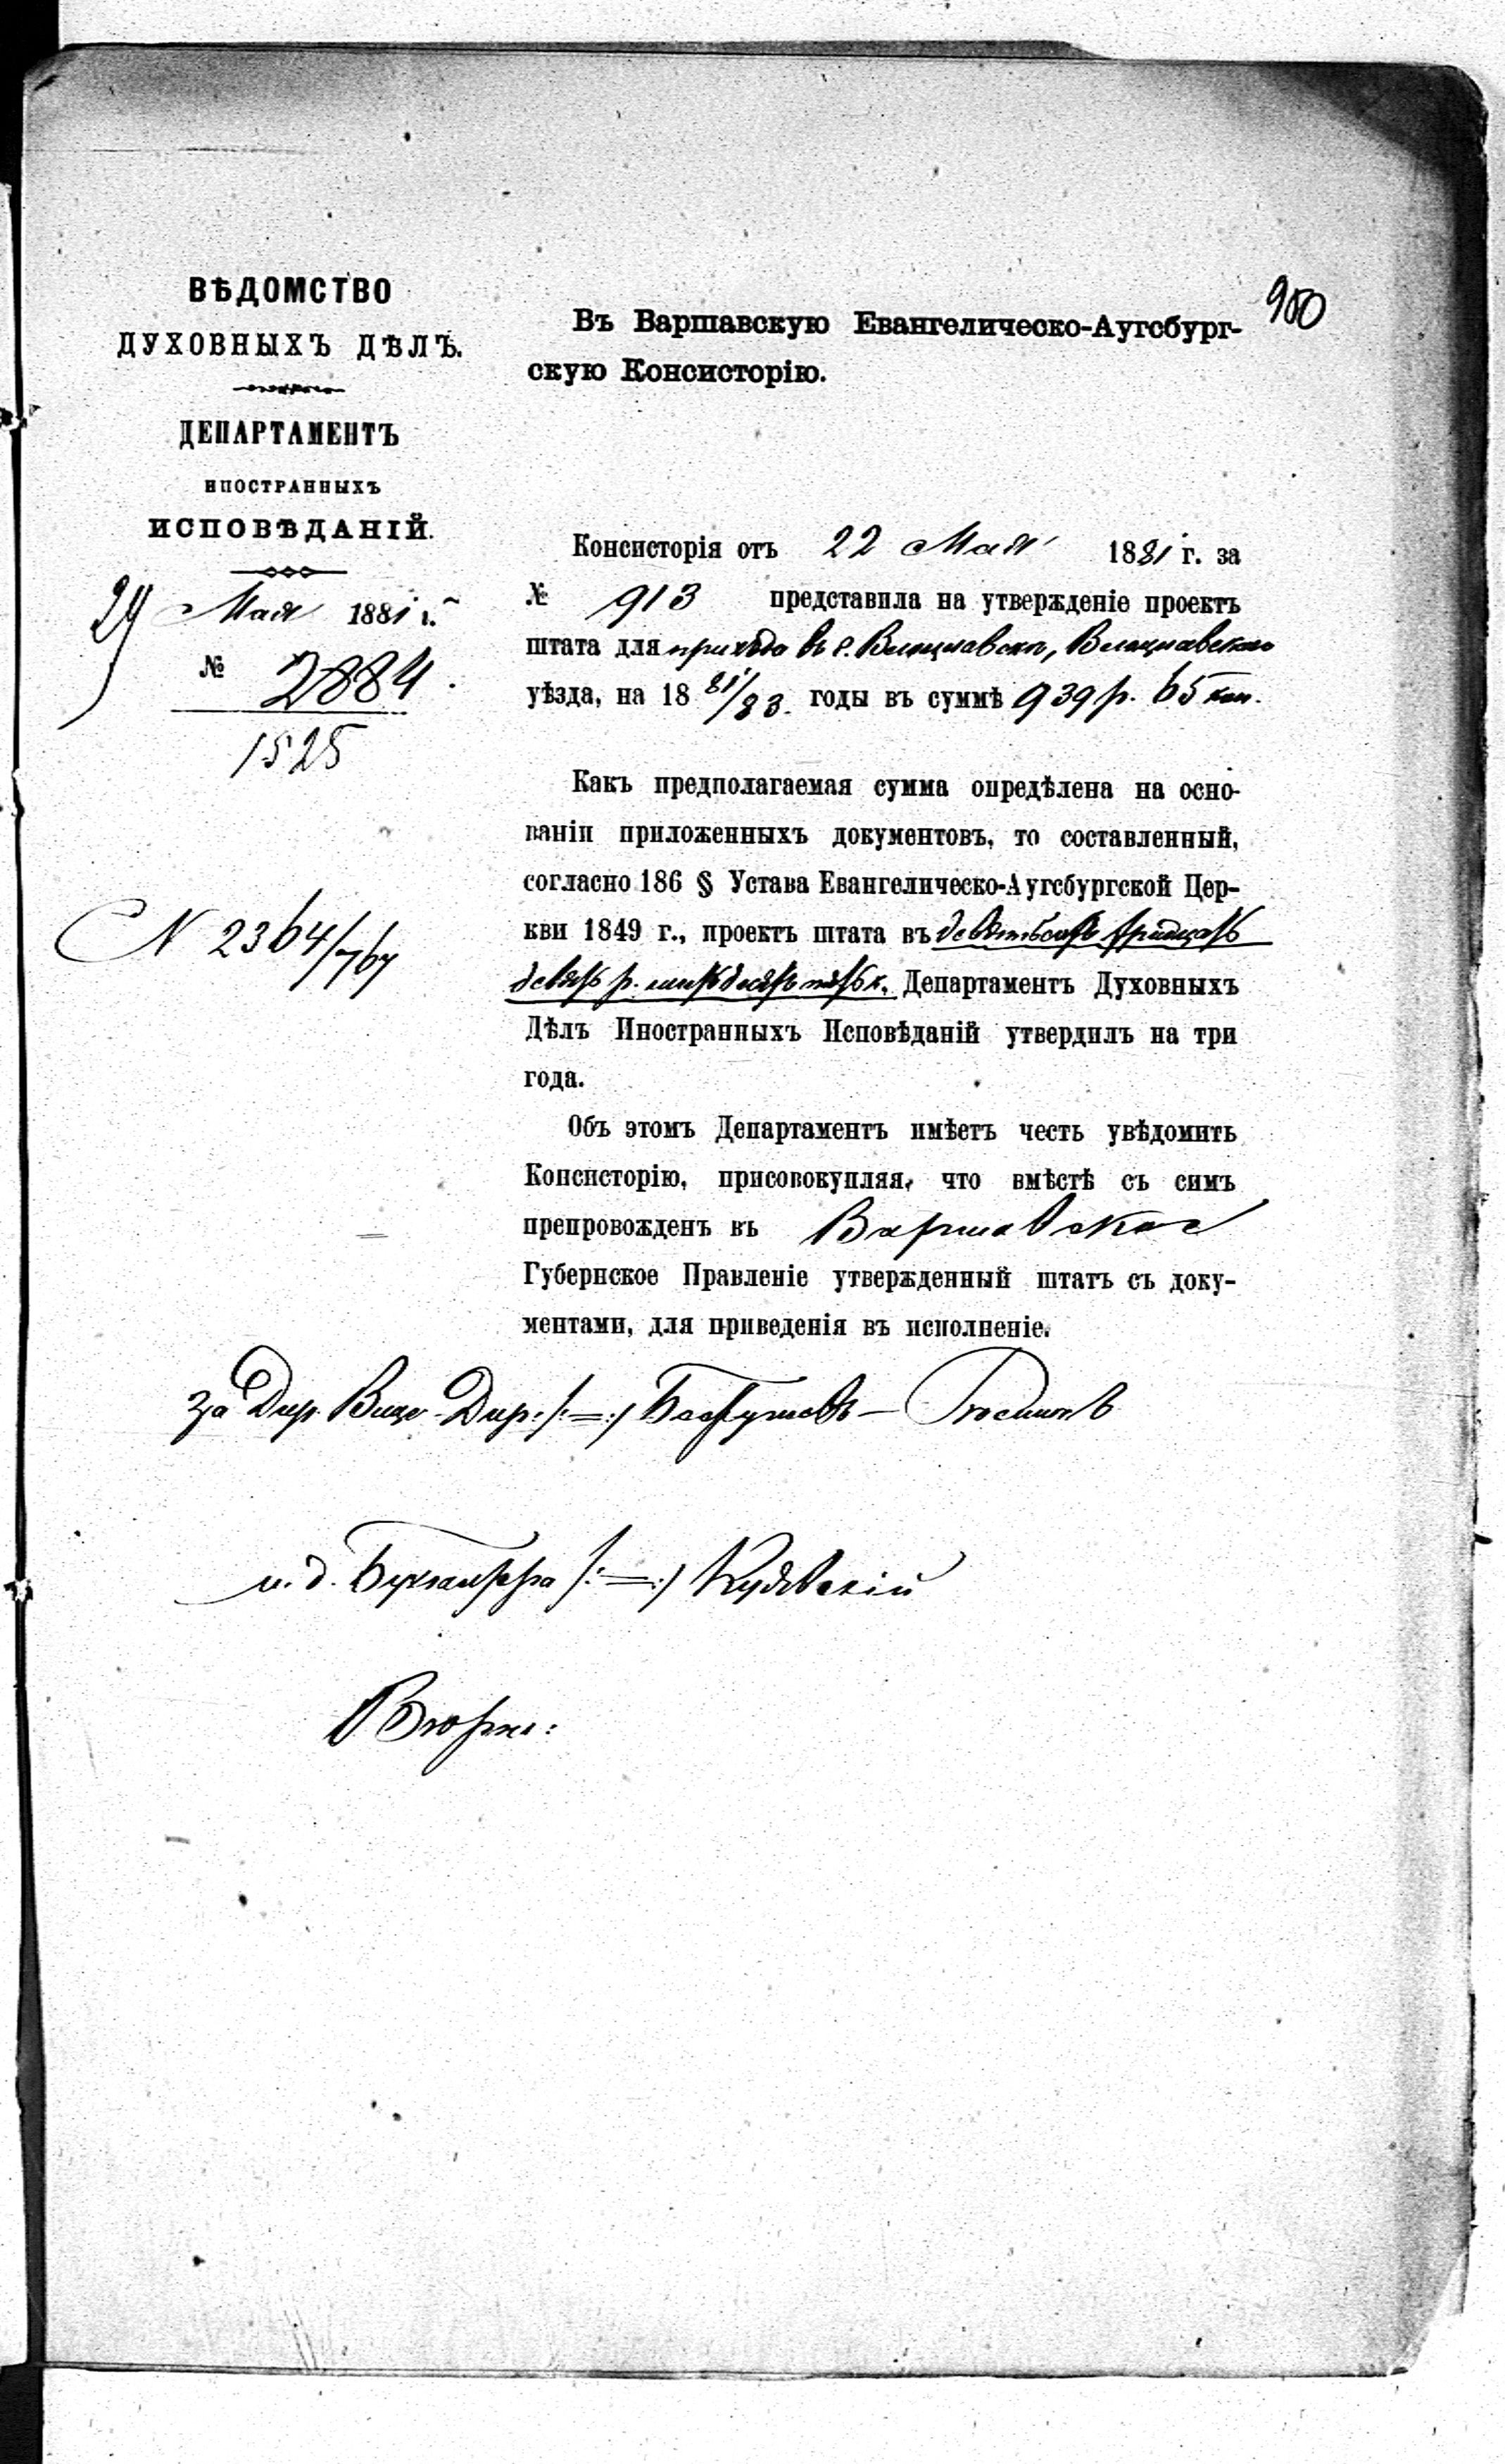 900
ВѢДОМСТВО
ДУХОВНЫХЪ ДѢЛЪ.
ДЕПАРТАМЕНТЪ
ИНОСТРАННЫХЪ
ИСПОВѢДАНІЙ.
29 Мая 1881 г.
№ 2884.
1525
N 2364/767
Въ Варшавскую Евангелическо-Аугсбург-
скую Консисторію.
Консисторія отъ 22 Мая 1881 г. за
№ 913 представила на утвержденіе проектъ
штата для прихода въ г.
уѣзда, на 18 81/83. годы въ суммѣ 939 р. 65 коп.
Какъ предполагаемая сумма опредѣлена на осно-
ваніи приложенныхъ документовъ, то составленный,
согласно 186 § Устава Евангелическо-Аугсбургской Цер-
кви 1849 г., проектъ штата въ девятьсотъ тридцать
девять р. шестьдесятъ пять к. Департаментъ Духовныхъ
Дѣлъ Иностранныхъ Исповѣданій утвердилъ на три
года.
Объ этомъ Департаментъ имѣетъ честь увѣдомить
Консисторію, присовокупляя, что вмѣстѣ съ симъ
препровожденъ въ Варшавское
Губернское Правленіе утвержденный штатъ съ доку-
ментами, для приведенія въ исполненіе.
За Дир. Вице-Дир: /:=:/
и. д. Бухгалтера /:=:/